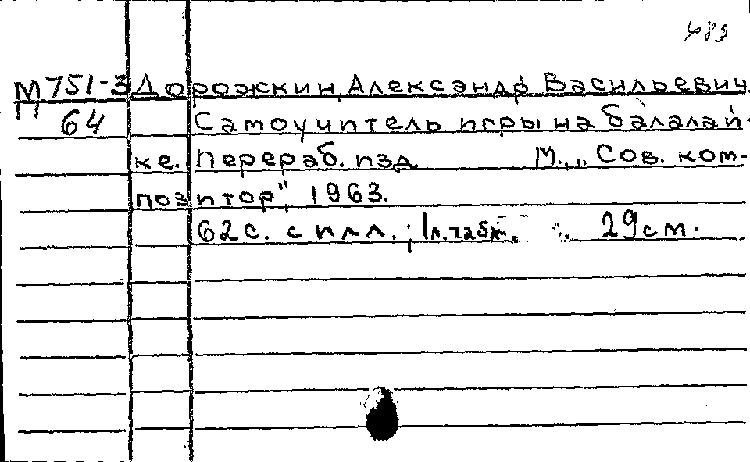 М 751-3 Дорожкин, Александр Васильевич
64 Самоучитель игры на балалай-
ке. Перераб. изд М., „Сов. ком-
позитор", 1963.
62 с. с илл.; 1 л. табл. 29 см.